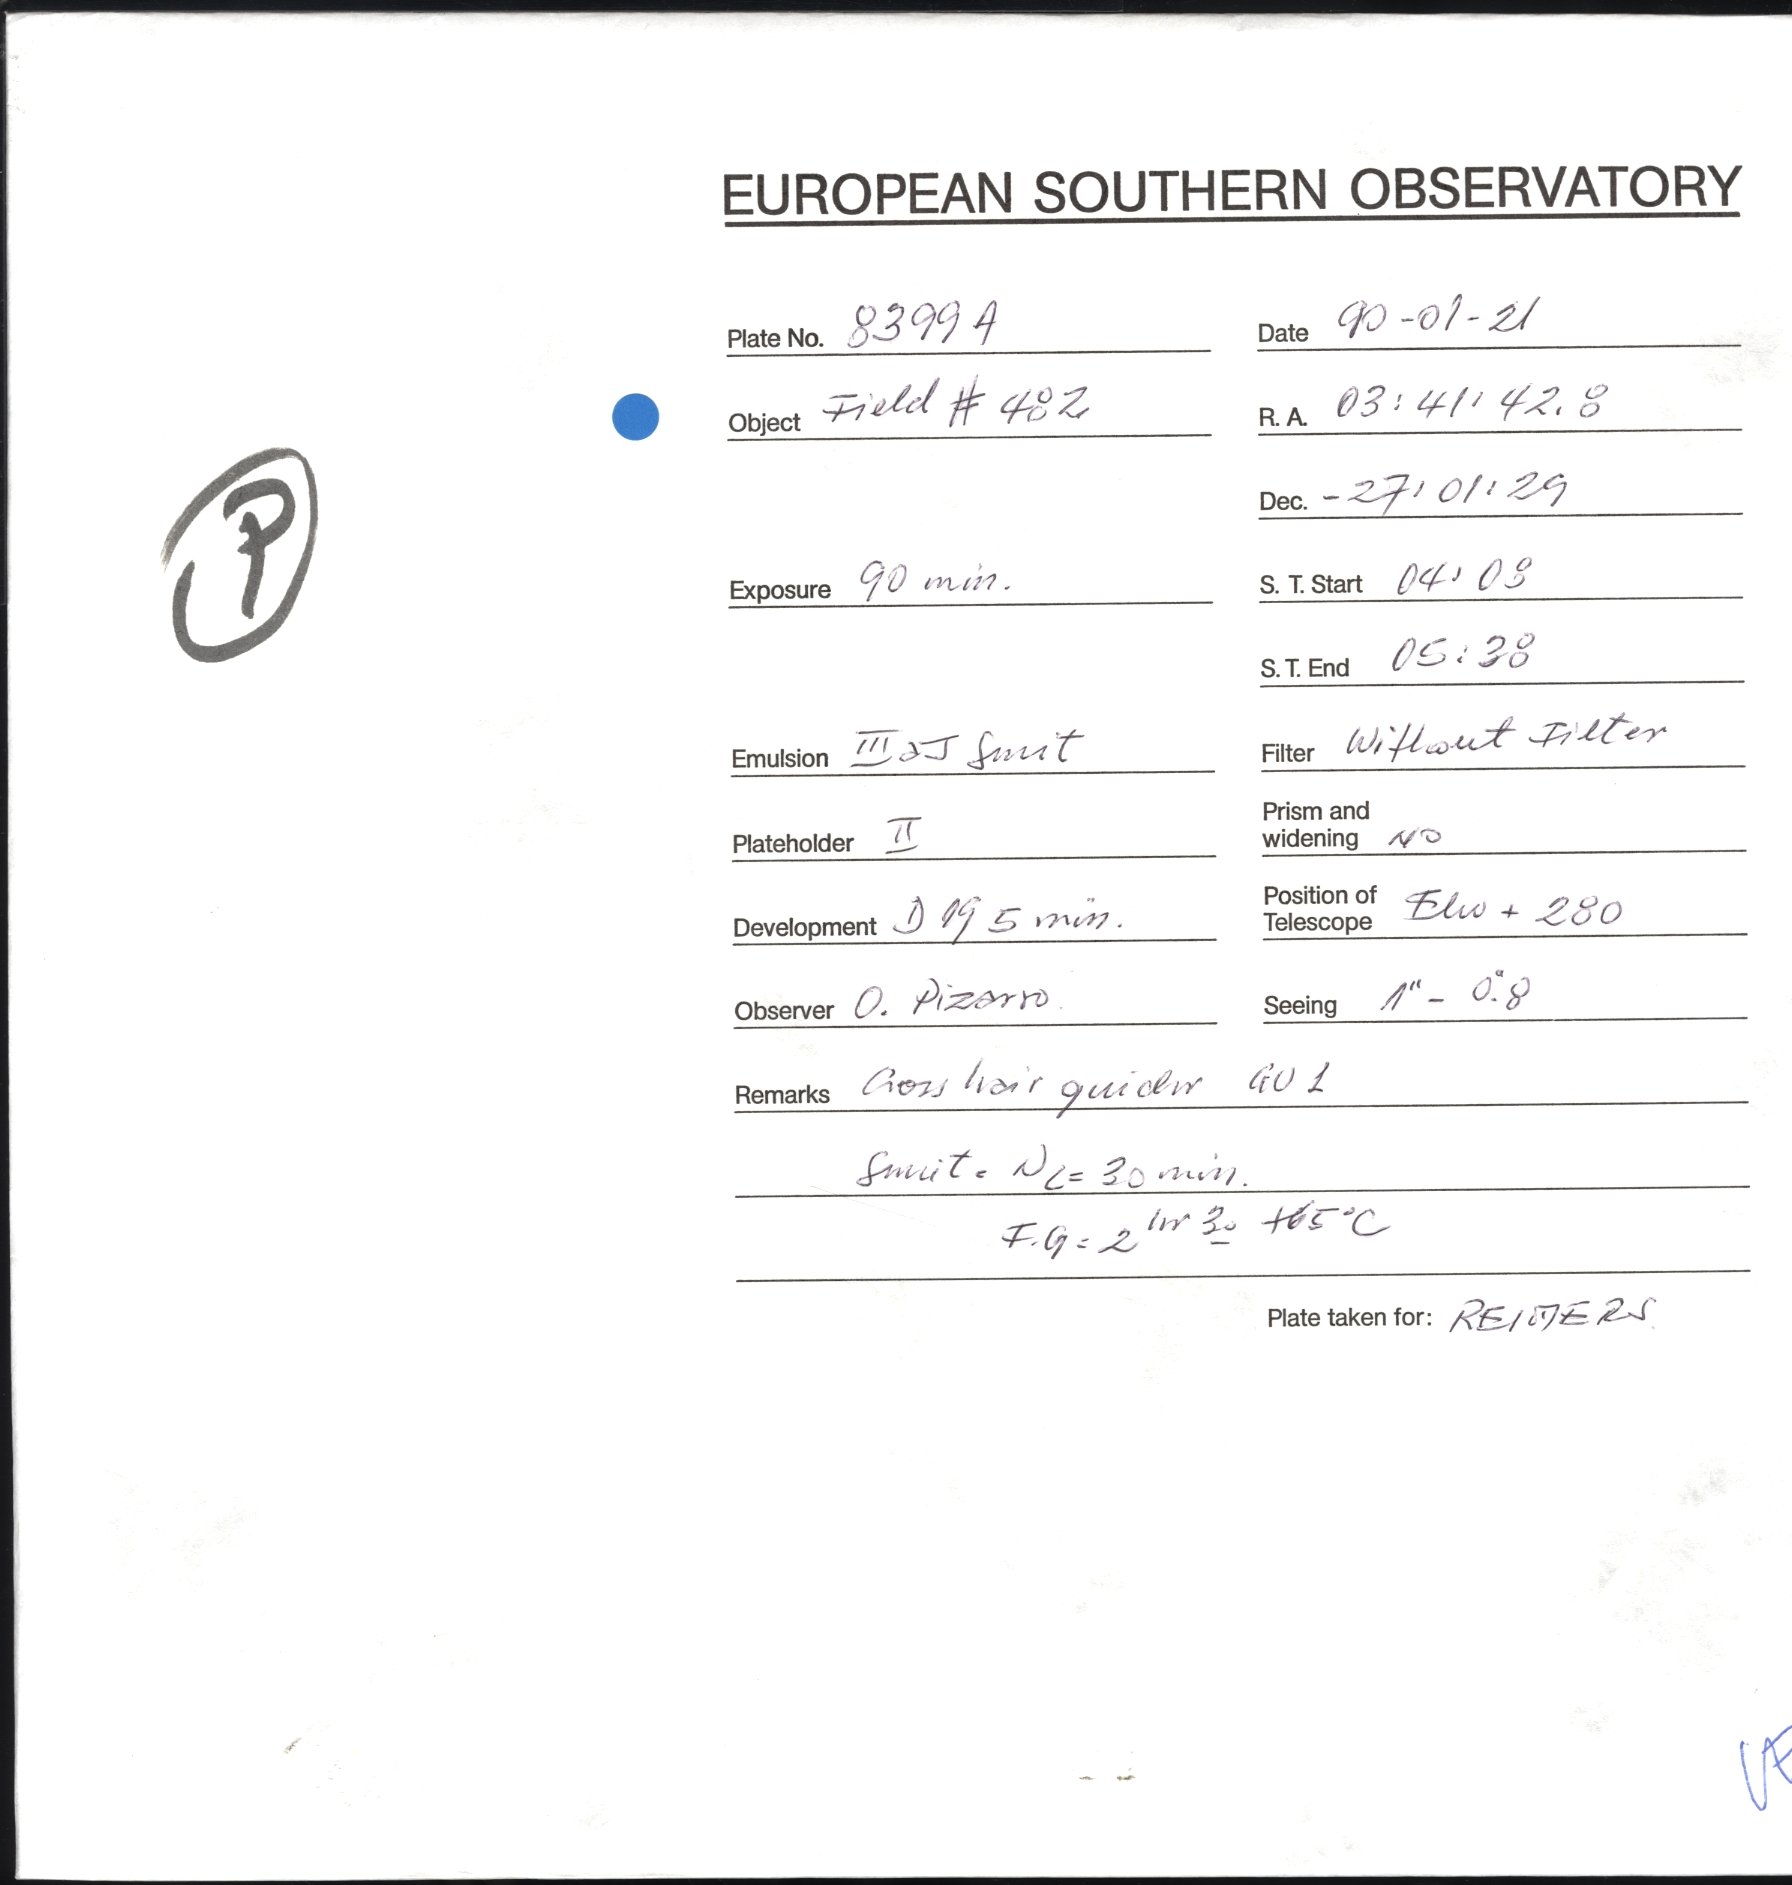 EUROPEAN SOUTHERN OBSERVATORY
Plate No. 8399 A
Date 90-01-21
Object Field # 482
R. A. 03:41:42.8
P
Dec. -27:01:29
Exposure 90 min.
S. T. Start 04:08
S. T. End 05:38
Emulsion IIIaJ
Filter Without Filter
Plateholder II
Prism and
widening NO
Development D19 5 min.
Position of
Telescope + 280
Observer O. Pizarro.
Seeing 1" - 0".8
Remarks Cross hair guider GU 1
N2 = 30 min.
F.G = 2hr 30 +65°C
Plate taken for: REIMERS
VE